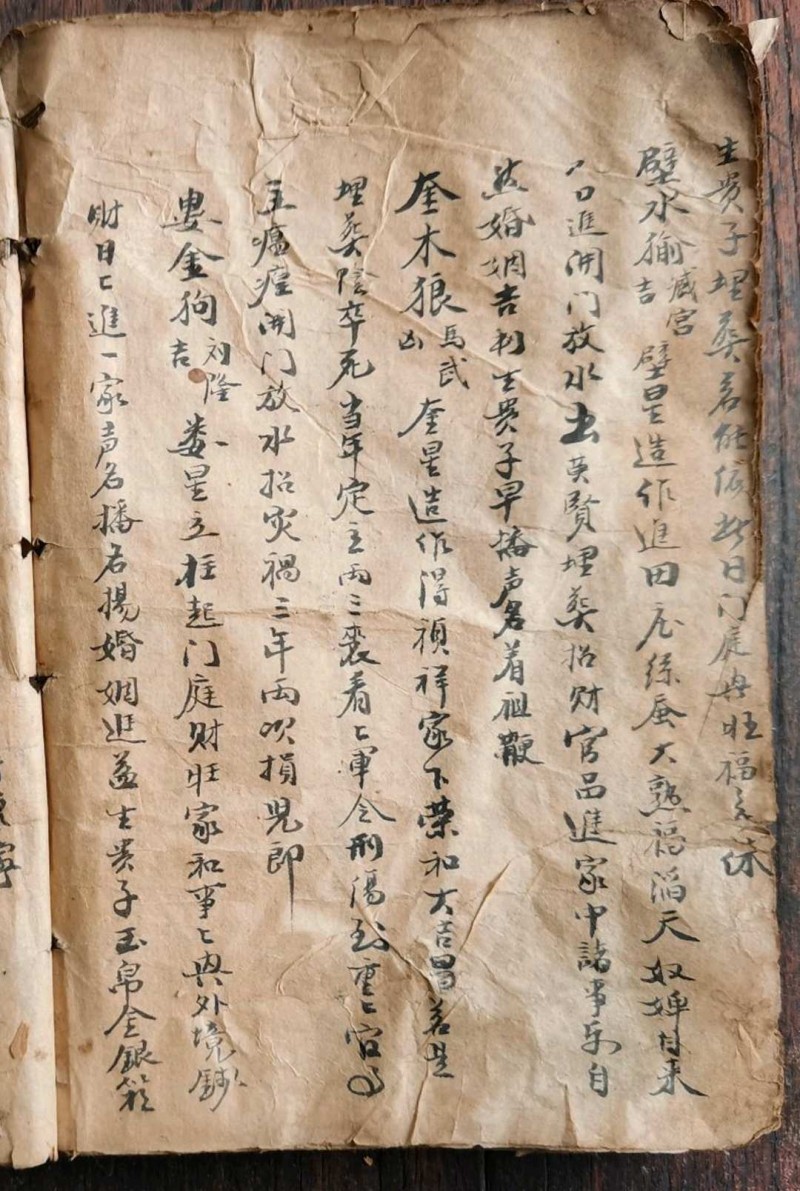 生贵子埋葬若能依此日门庭兴旺福无休
壁水㺄臧宫吉 壁星造作進田庄絲蚕大熟福滔天奴婢自来
人口進開门放水出英賢埋葬招财官品進家中諸事乐自
然婚姻吉利生贵子早播声名着祖鞭
奎木狼馬武凶 奎星造作得禎祥家下荣和大吉昌若是
埋葬陰卒死当年定主两三喪看㆑軍令刑傷到重㆑官事
主瘟瘟開门放水招灾禍三年両次損児郎
婁金狗刘隆吉 娄星立柱起门庭财旺家和事㆑興外境錢
财日㆑進一家声名播名揚婚姻進益生贵子玉帛金銀箱